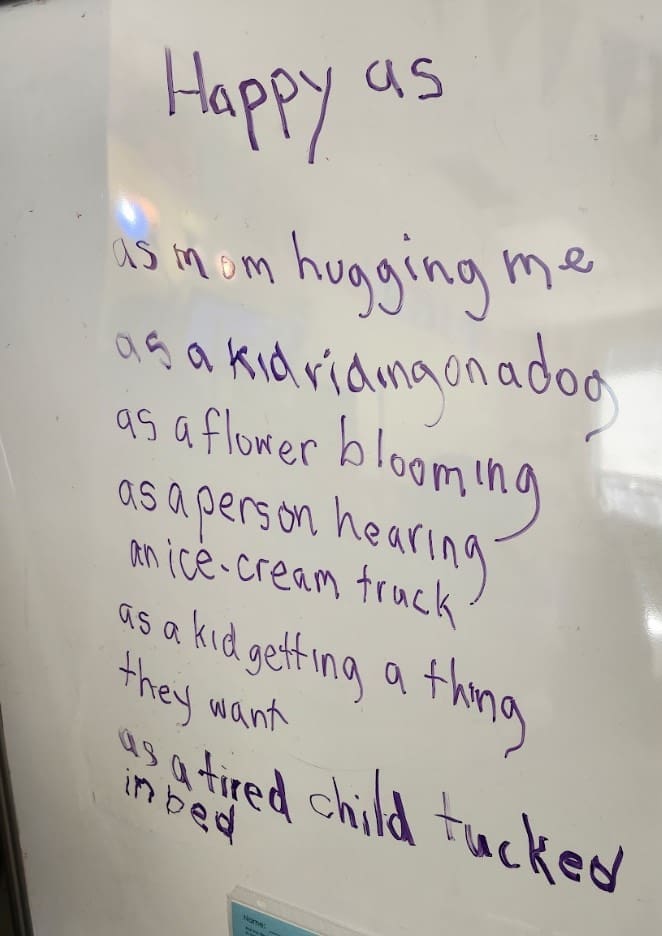 Happy as
as mom hugging me
as a kid riding on a dog
as a flower blooming
as a person hearing
an ice-cream truck
as a kid getting a thing
they want
as a tired child tucked
in bed
Name: